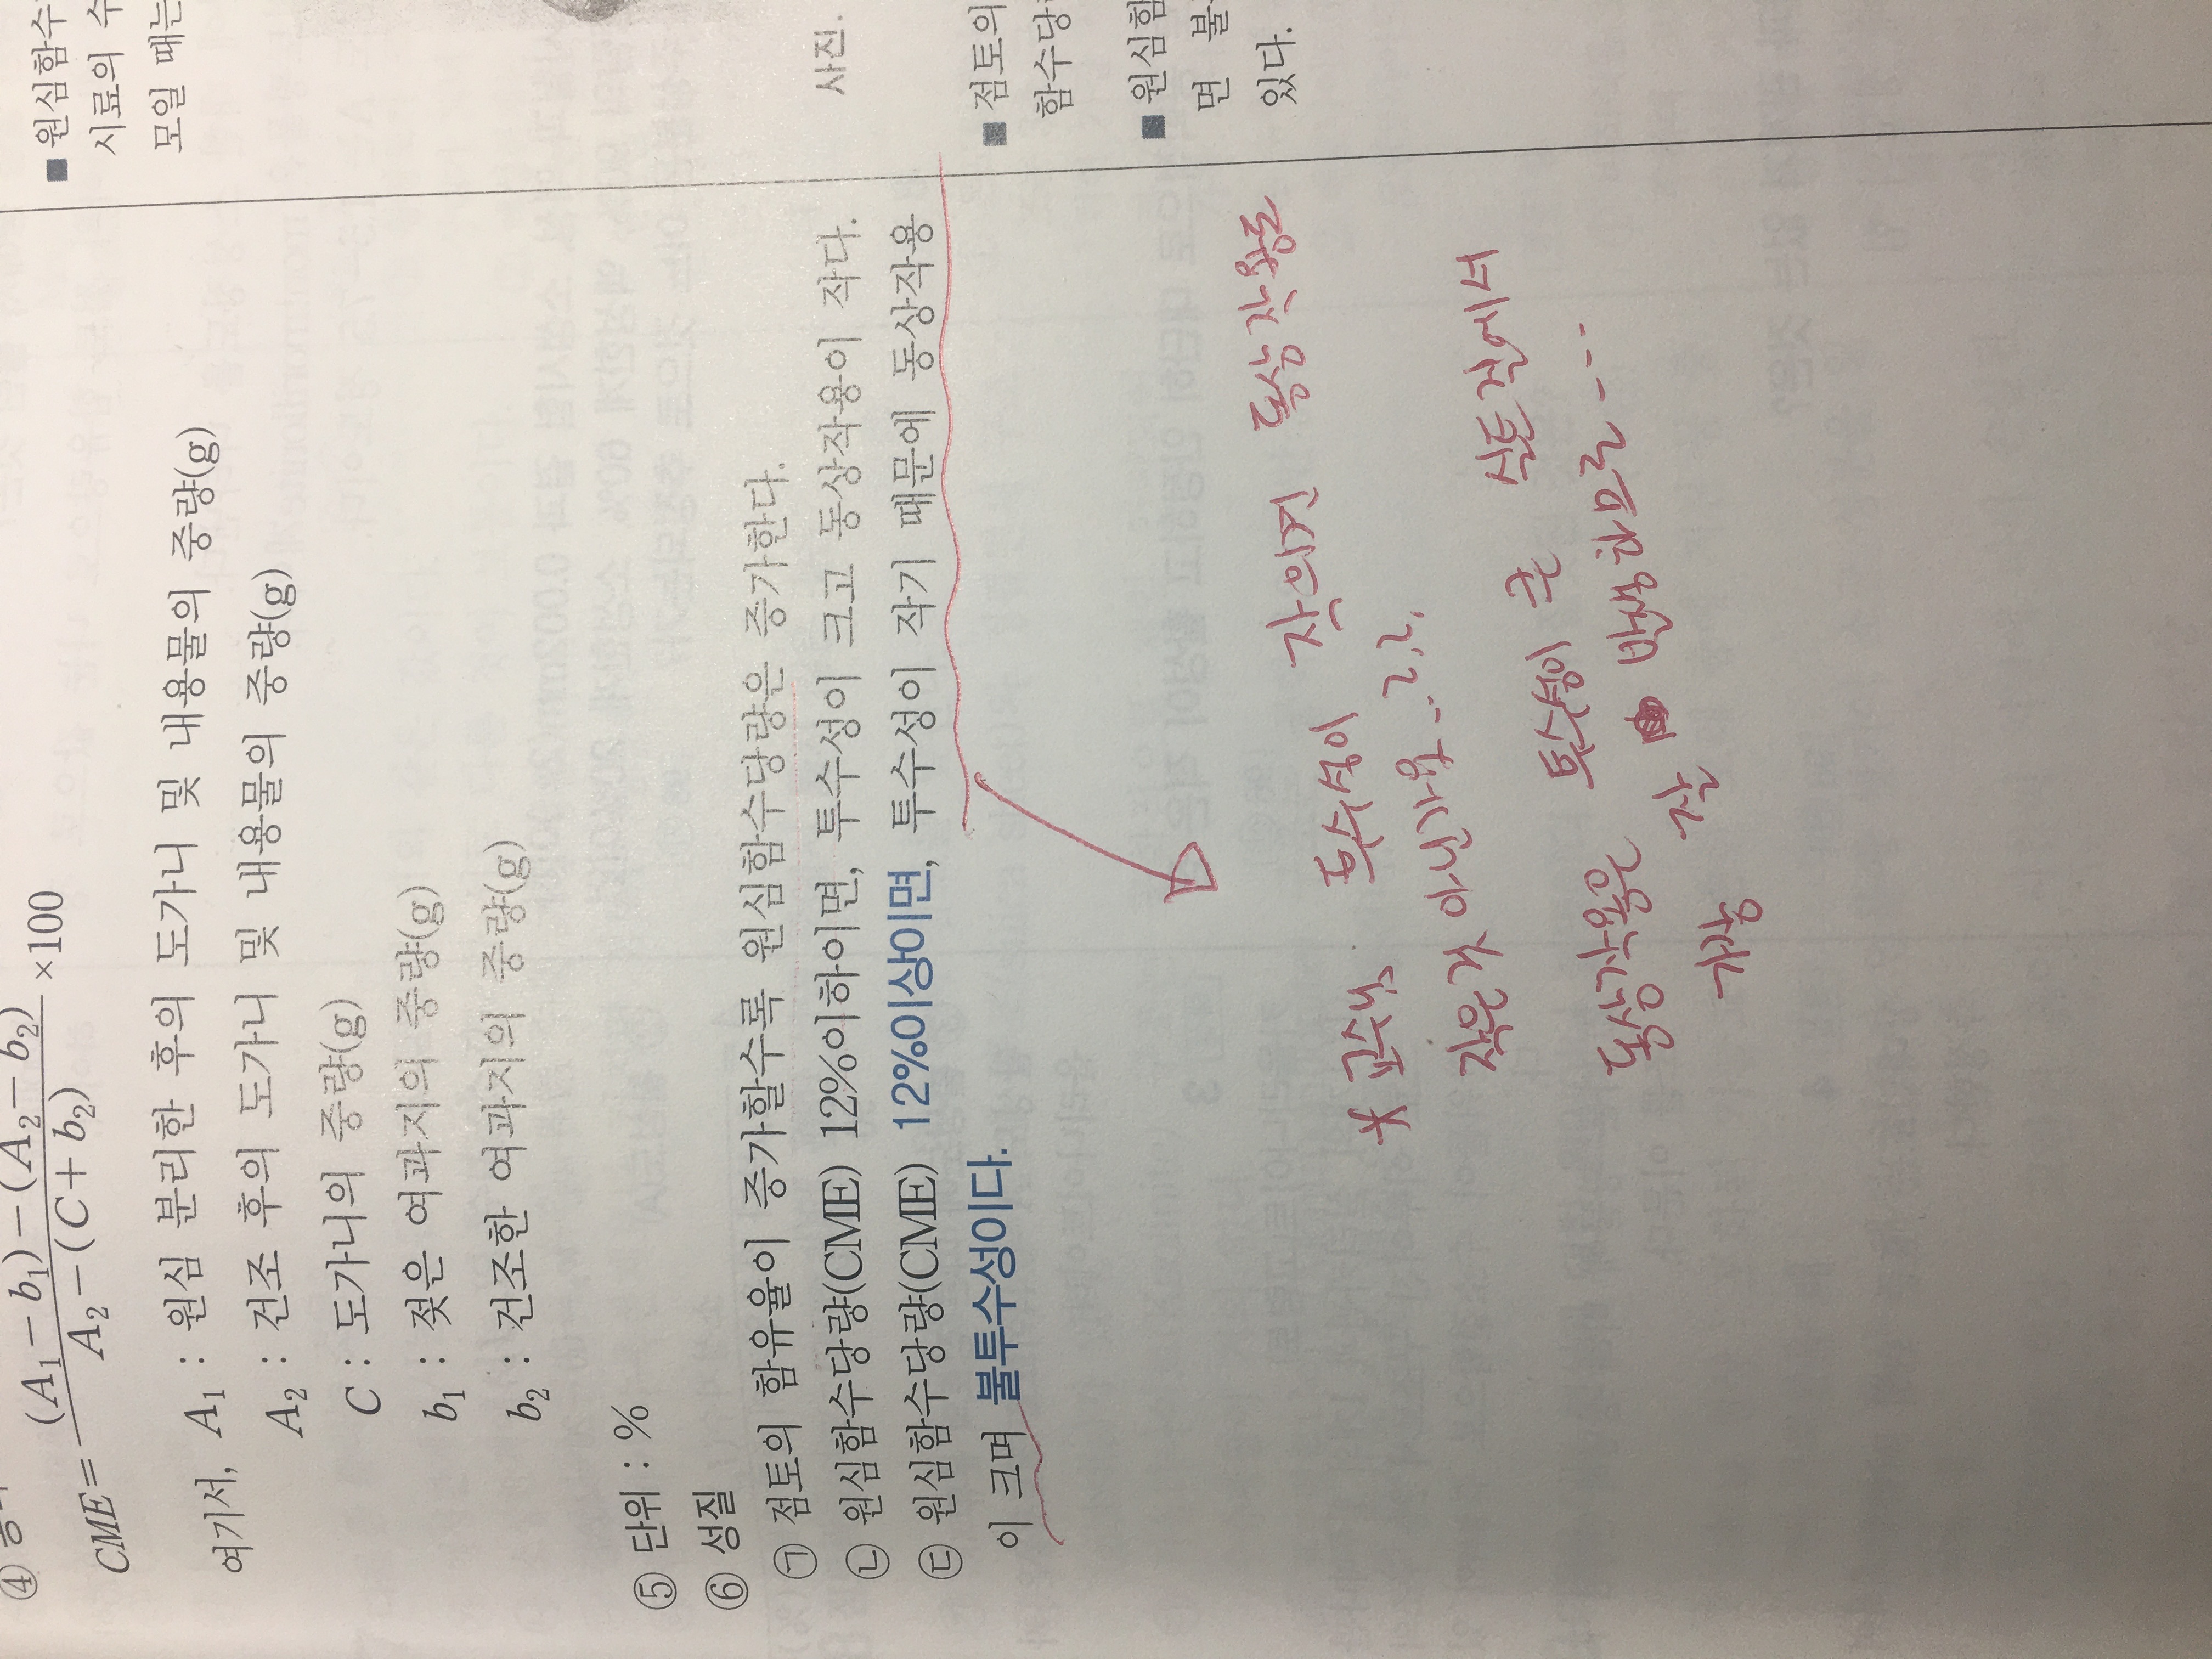 CME = (A₁ − b₁) − (A₂ − b₂) / A₂ − (C + b₂) ×100
여기서, A₁ : 원심 분리한 후의 도가니 및 내용물의 중량(g)
A₂ : 건조 후의 도가니 및 내용물의 중량(g)
C : 도가니의 중량(g)
b₁ : 젖은 여과지의 중량(g)
b₂ : 건조한 여과지의 중량(g)
⑤ 단위 : %
⑥ 성질
㉠ 점토의 함유율이 증가할수록 원심함수당량은 증가한다.
㉡ 원심함수당량(CME) 12%이하이면, 투수성이 크고 동상작용이 작다.
㉢ 원심함수당량(CME) 12%이상이면, 투수성이 작기 때문에 동상작용
이 크며 불투수성이다.
* 교수님 투수성이 작으면 동상작용은
작은거 아닌가요..??
동상작용은 투수성이 큰 실트질에서
가장 잘 발생하므로---
■ 원심함수
시료의 수
모일 때는
사진.
■ 점토의
함수당
■ 원심함
면 불
있다.